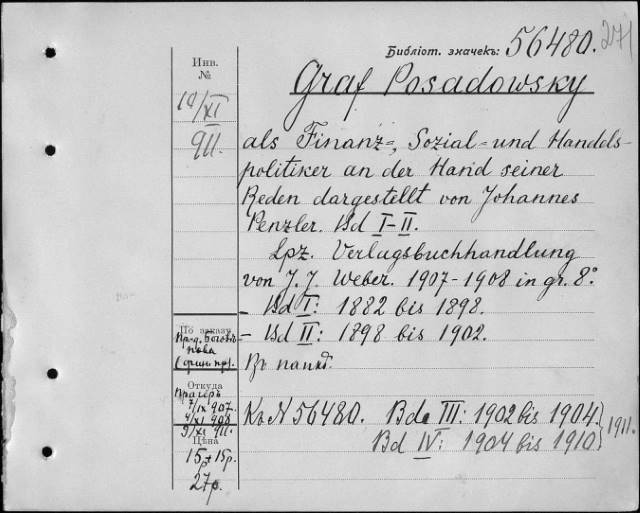 Библіот. значекъ: 56480.
271
Инв.
№
Graf Posadowsky
10/XI
911.
als Finanz=, Sozial=und Handels-
politiker an der Hand seiner
Reden dargestellt von Johannes
Penzler. Bd I-II.
Lpz. Verlagsbuchhandlung
von J. J. Weber. 1907-1908 in gr. 8°.
- Bd I: 1882 bis 1898.
По заказу
- Bd II: 1898 bis 1902.
Въ папкѣ.
Откуда
Прагеръ
7/IX 907.
4/XI 908
3/XI 911.
Къ N 56480. Bde III: 1902 bis 1904.
Bd IV: 1904 bis 1910
} 1911.
Цѣна
15р+15р.
27р.